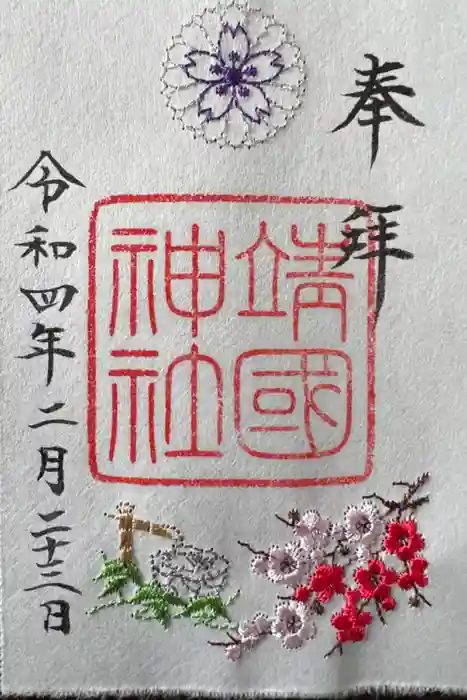 奉拝
靖國
神社
令和四年二月二十三日